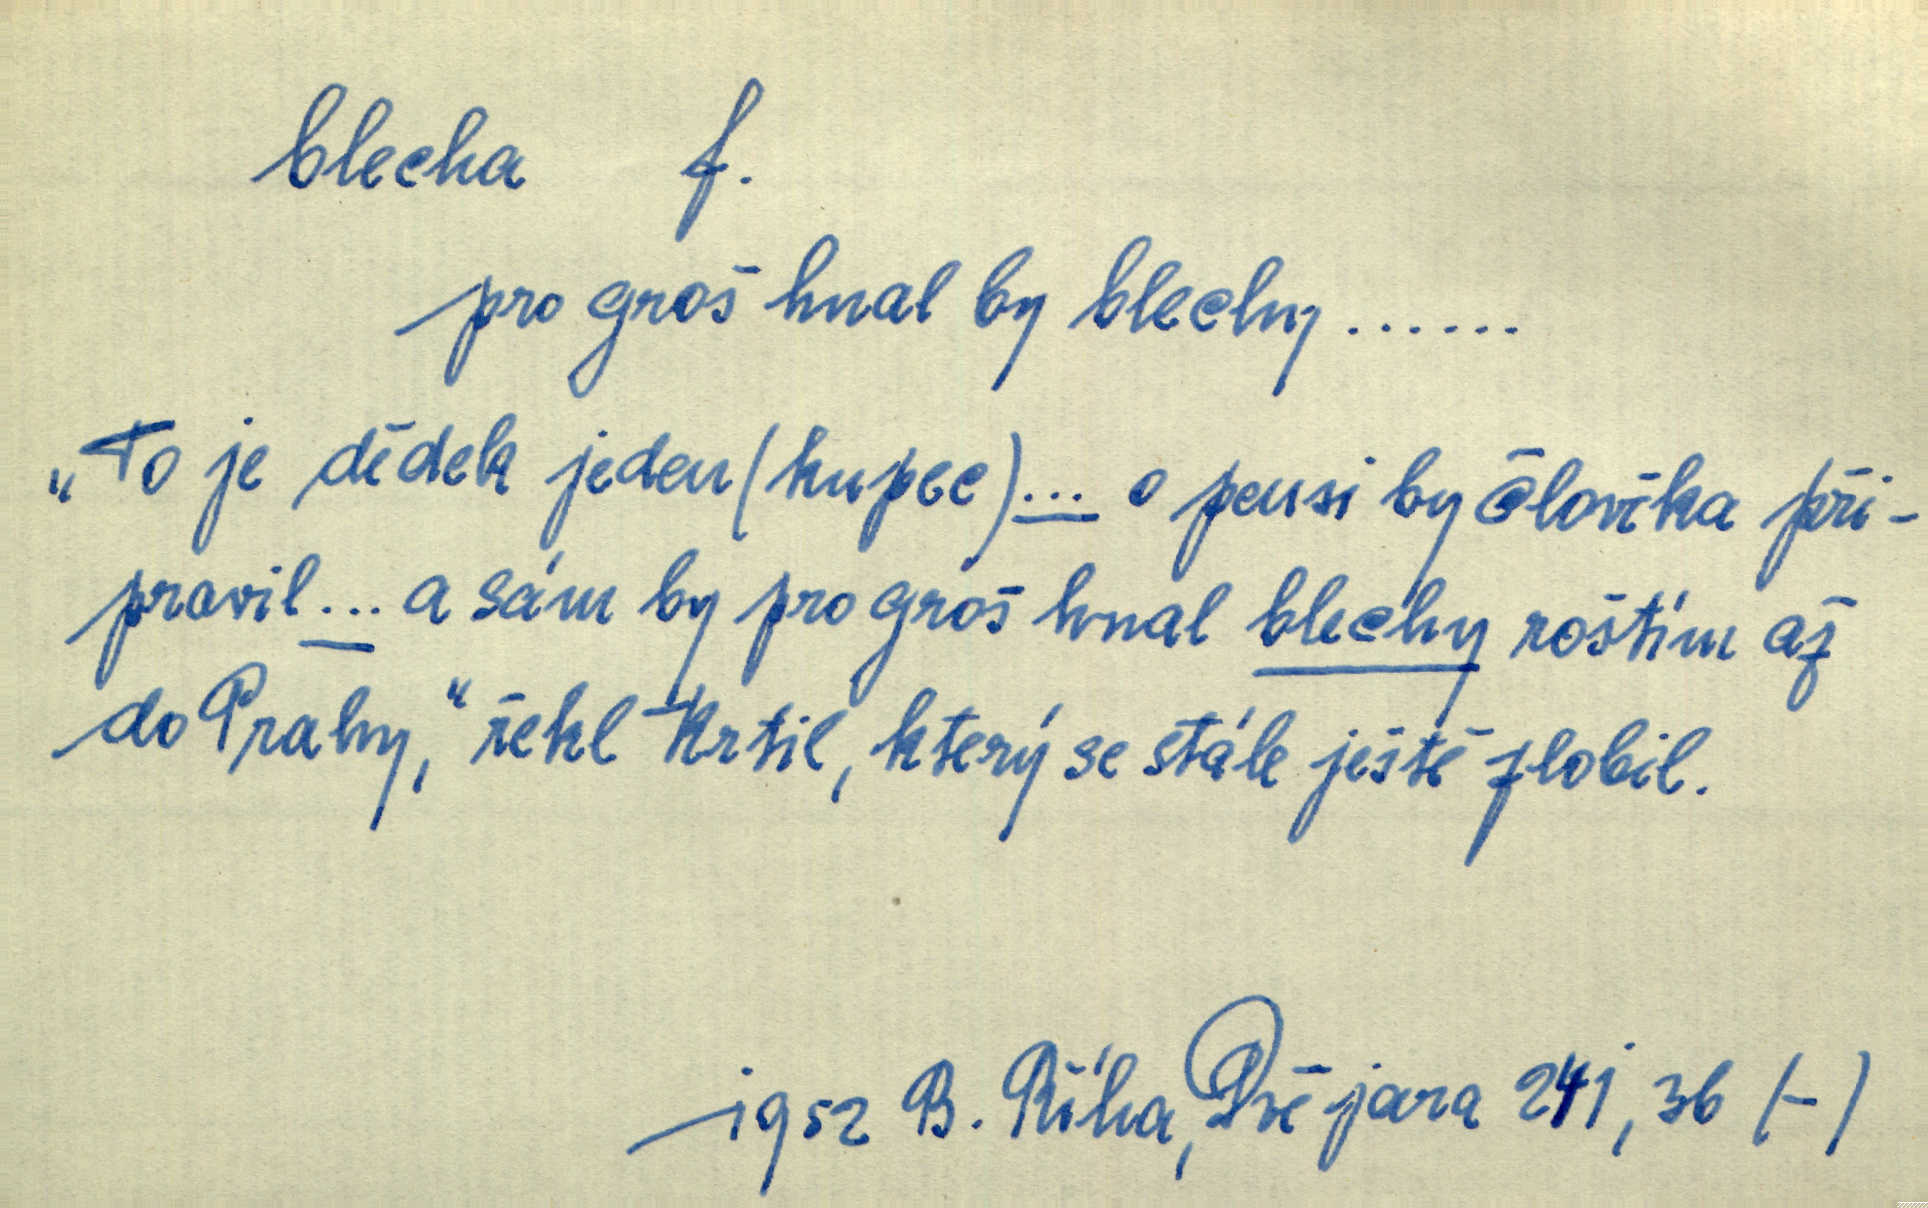 blecha f.
pro groš hnal by blechy ......
„To je dědek jeden (kupec) ... o pensi by človíka při-
pravil ... a sám by pro groš hnal blechy roštím až
do Prahy,“ řekl Krtil, který se stále ještě zlobil.
1952 B. Říha, Dvě jara 241, 36 (-)